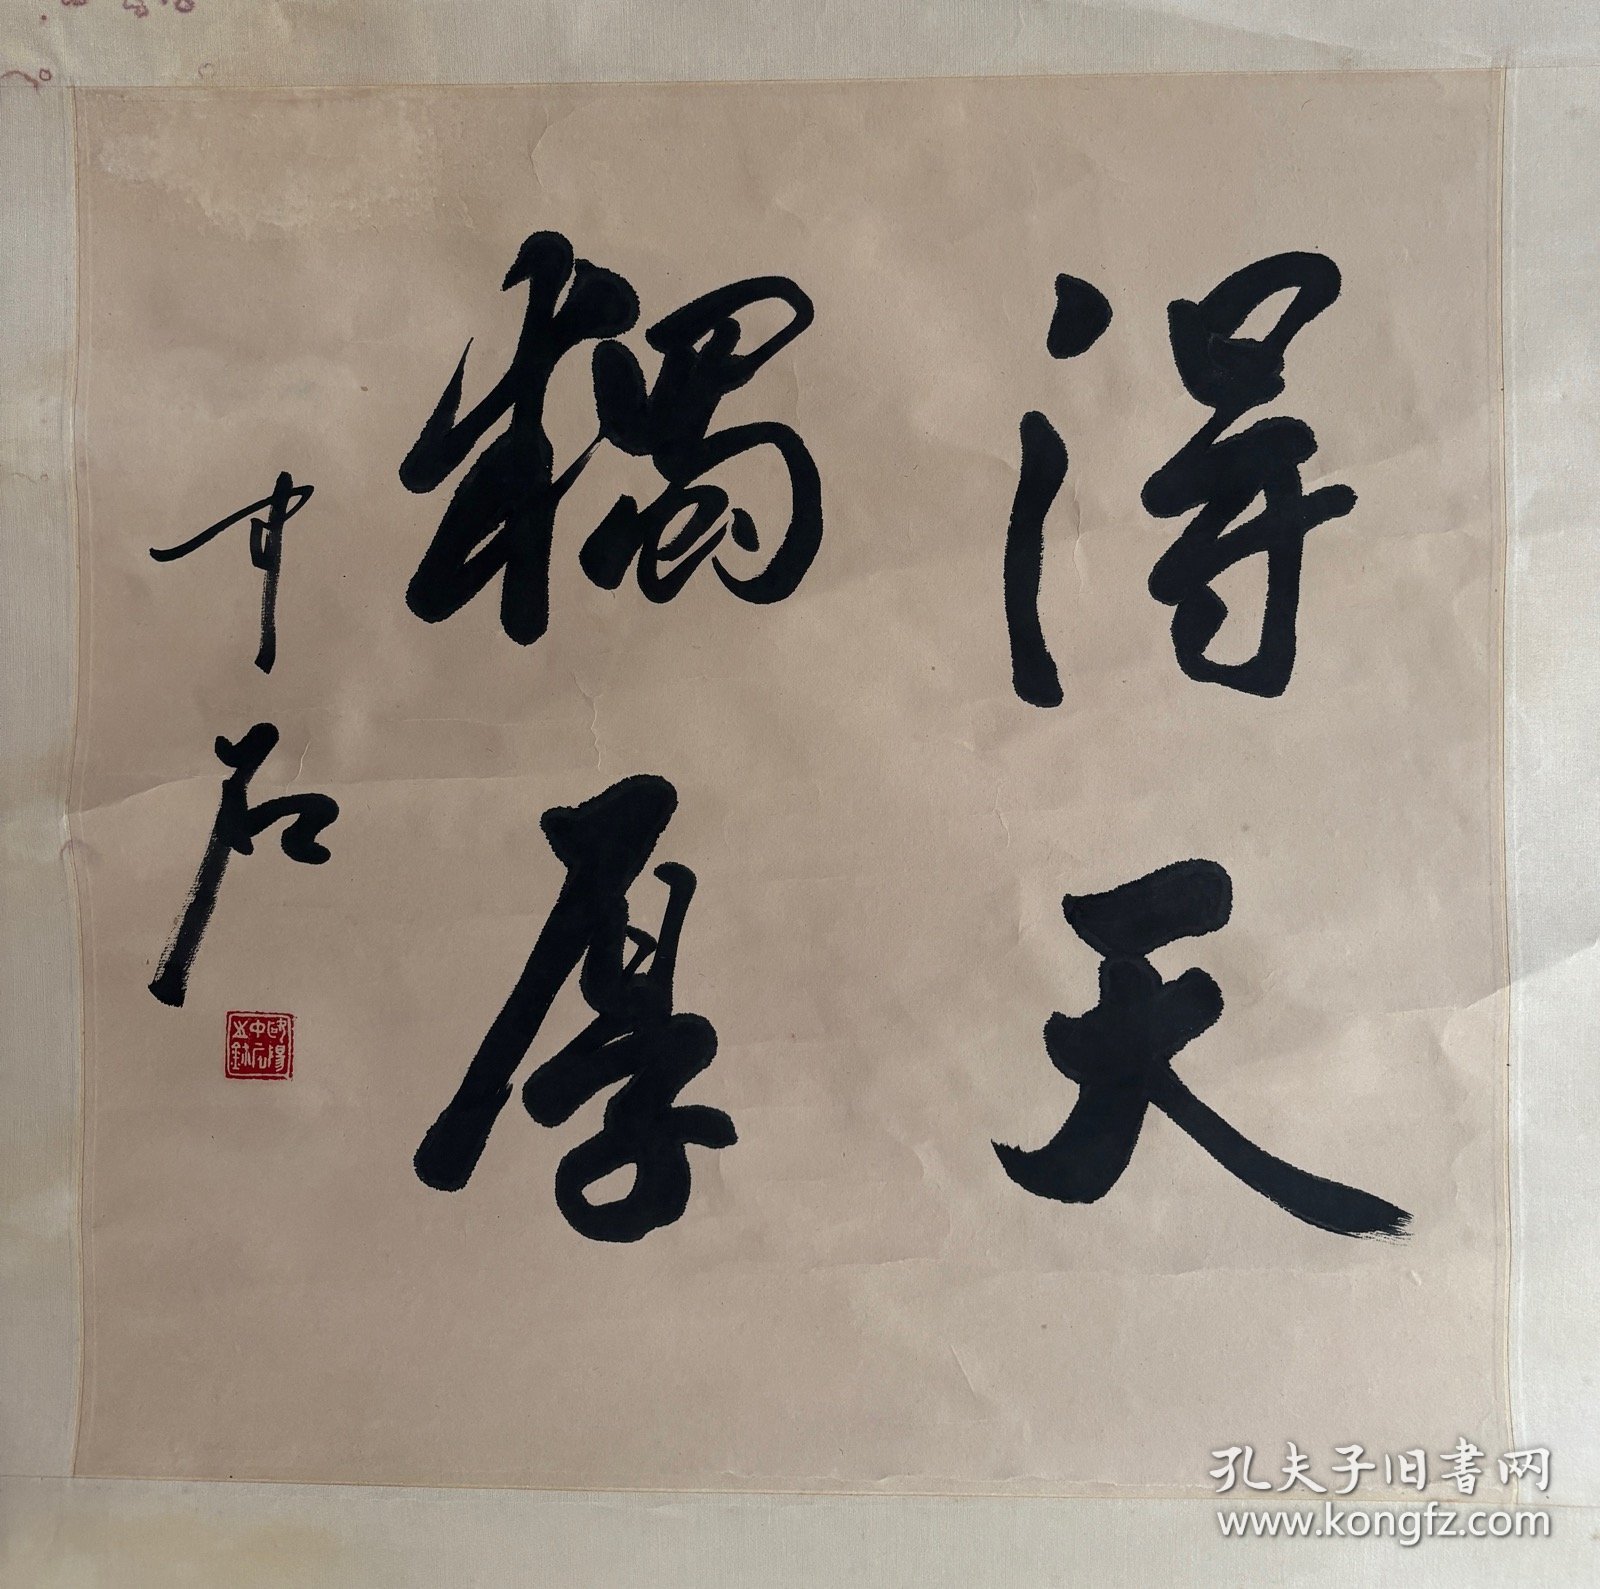 得天
獨厚
中石
歐陽中石之鉨
孔夫子旧书网
www.kongfz.com